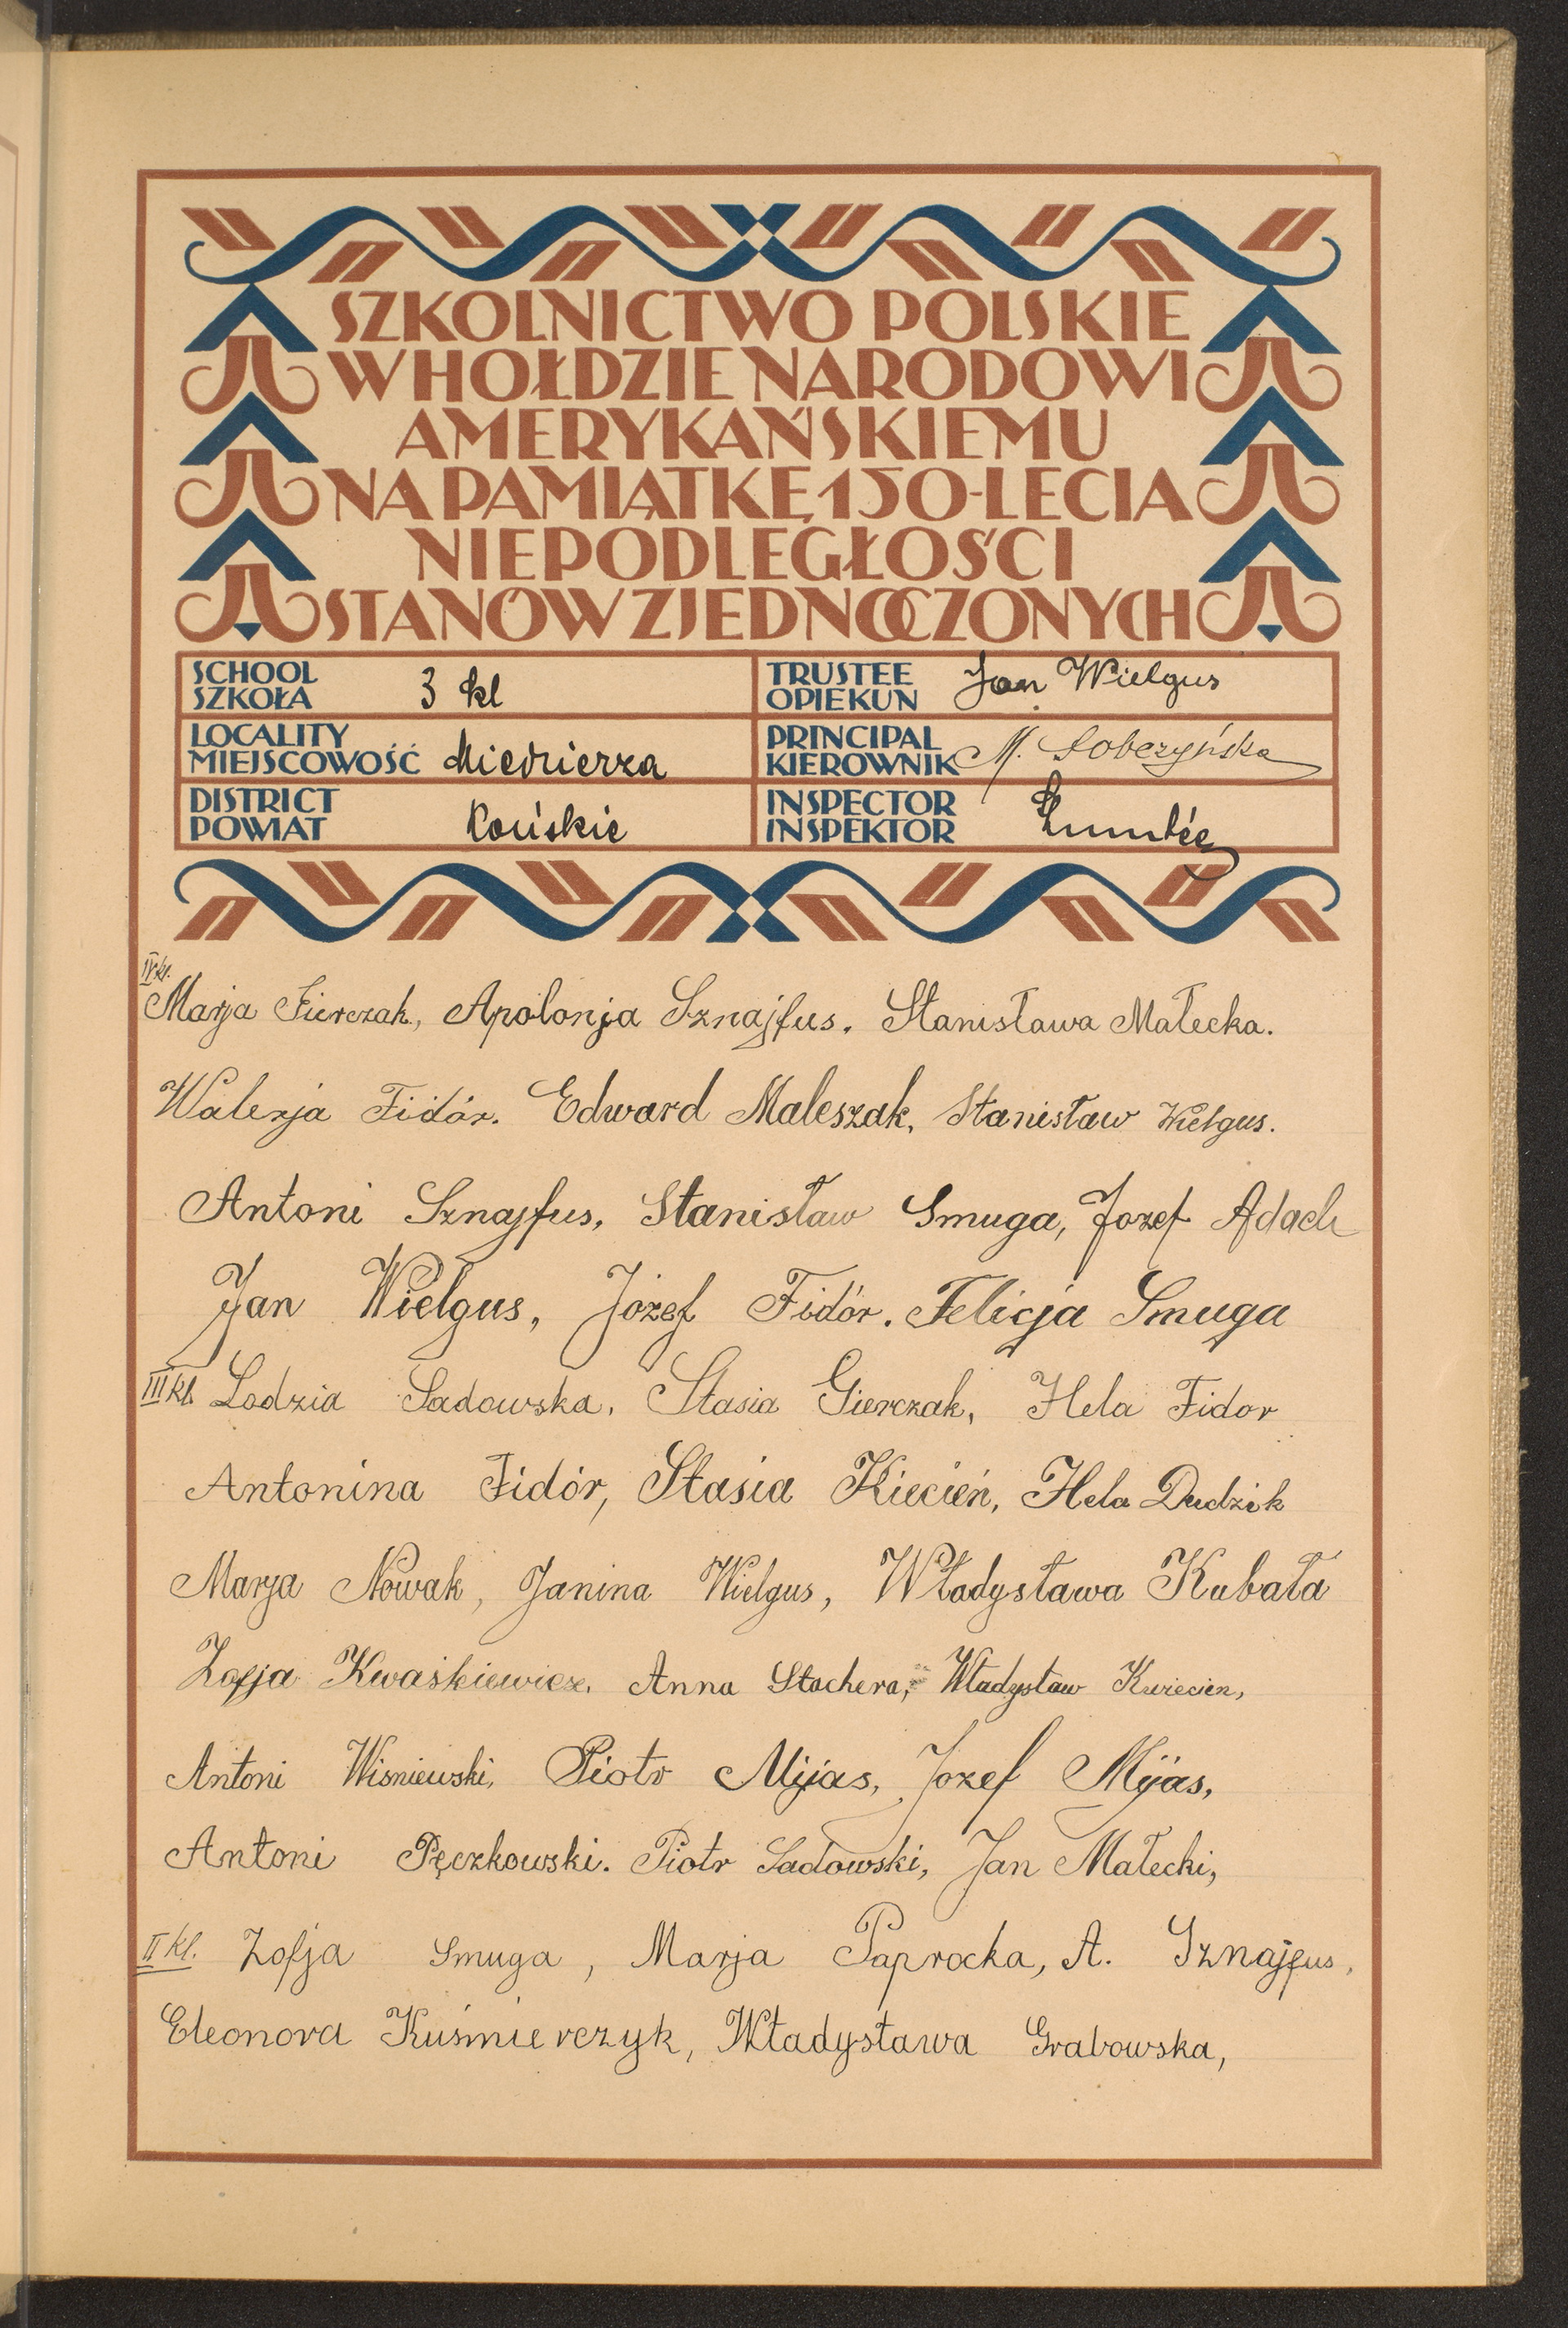 SZKOLNICTWO POLSKIE
W HOŁDZIE NARODOWI
AMERYKAŃSKIEMU
NA PAMIĄTKĘ 150-LECIA
NIEPODLEGŁOŚCI
STANÓW ZJEDNOCZONYCH
SCHOOL
SZKOŁA
3 kl
TRUSTEE
OPIEKUN
Jan Wielgus
LOCALITY
MIEJSCOWOŚĆ
Miedzierza
PRINCIPAL
KIEROWNIK
M. Sobczyńska
DISTRICT
POWIAT
Końskie
INSPECTOR
INSPEKTOR
IV kl.
Marja Gierczak, Apolonja Sznajfus. Stanisława Małecka.
Walerja Fidór. Edward Maleszak, Stanisław Wielgus.
Antoni Sznajfus, Stanisław Smuga, Jozef Adach
Jan Wielgus, Józef Fidór. Felicja Smuga
III kl. Lodzia Sadowska, Stasia Gierczak, Hela Fidor
Antonina Fidór, Stasia Kiecień, Hela Dudzik
Marja Nowak, Janina Wielgus, Władysława Kubała
Zofja Kwaśkiewicz, Anna Stachera, Władysław Kwiecien,
Antoni Wisniewski, Piotr Mijas, Jozef Mijas,
Antoni Pęczkowski. Piotr Sadowski, Jan Małecki,
II kl. Zofja Smuga, Marja Paprocka, A. Sznajfus,
Eleonora Kuśmierczyk, Władysława Grabowska,